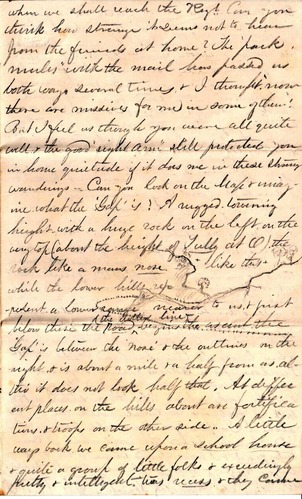 when we shall reach the Regt. Can you
think how strange it seems not to hear
from the friends at home? The "pack
mules" with the mail have passed us
both ways several times & I thought, now
there are missives for me in some of them!
But I feel as though you were all quite
well & the good "right Arm" still protected you
in home quietude if it does me in these strange
wanderings — Can you look on the Map & imag-
ine what the "Gap" is? A rugged towering
height with a huge rock on the left on the
very top (about the height of Tully at O) the
rock like a mans nose like this
while the lower hills rep-
resent a lower nearer to us, & just
the dotted line
below these the road, begins the ascent thro
"Gap" is between the "nose" & the outlines on the
right, & is about a mile & a half from us, al-
tho it does not look half that. At differ
ent places on the hills about are fortifica
tions, & troops on the other side. A little
ways back we came upon a school house
& quite a group of little folks & exceedingly
pretty & intelligent recess & they came